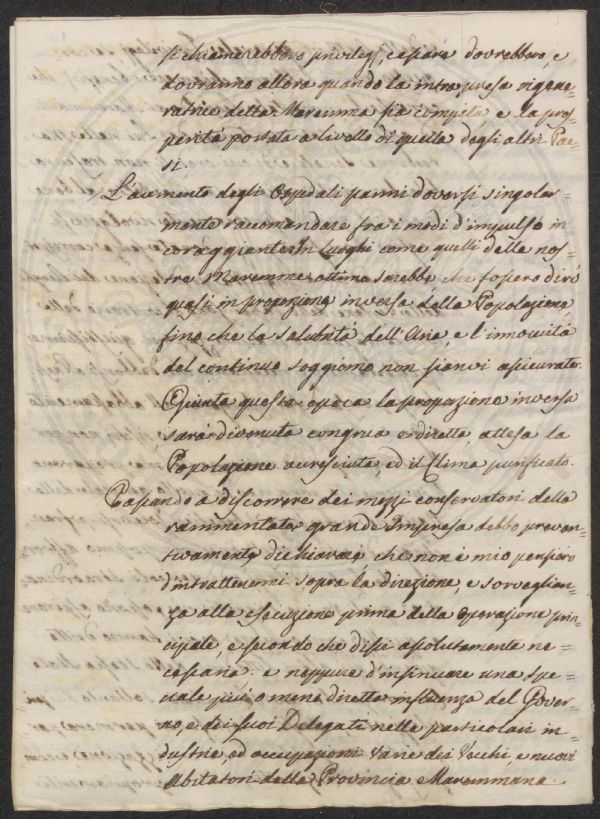 si chiamerebbero privilegj, cessare dovrebbero, e
dovranno allora quando la intrapresa rigene=
ratrice della Maremma sia compita e la pros=
perità portata a livello di quella degli altri Pae=
si.
L'aumento degli Ospedali parmi doversi singolar=
mente raccomandare fra i modi d'impulso in
coraggiante. In Luoghi come quelli delle nos=
tre Maremme, ottimo sarebbe che fossero dirò
quasi in proporzione inversa della Popolazione,
fino che la salubrità dell'Aria, e l'innocuità
del continuo soggiorno non sianvi assicurate.
Giunta questa epoca la proporzione inversa
sarà divenuta congrua e diretta attesa la
Popolazione accresciuta, ed il Clima purificato.
Passando a discorrere dei mezzi conservatori della
rammentata grande Impresa debbo preven=
tivamente dichiarare che non è mio pensiero
d'intrattenermi sopra la direzione, e sorveglian=
za alla esecuzione prima della operazione prin=
cipale, e secondo che dissi assolutamente ne=
cessaria e neppure d'insinuare una spe=
ciale più, o meno diretta influenza del Gover=
no, e dei suoi Delegati nelle particolari in
dustrie, ed occupazioni varie dei Vecchi, e nuovi
Abitatori della Provincia Maremmana.